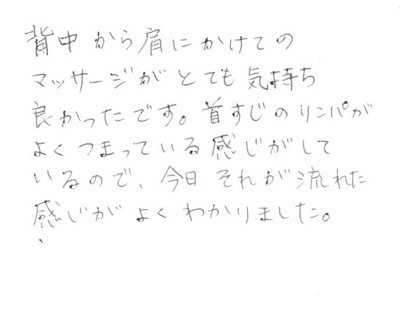 背中から肩にかけての
マッサージがとても気持ち
良かったです。首すじのリンパが
よくつまっている感じがして
いるので、今日それが流れた
感じがよくわかりました。